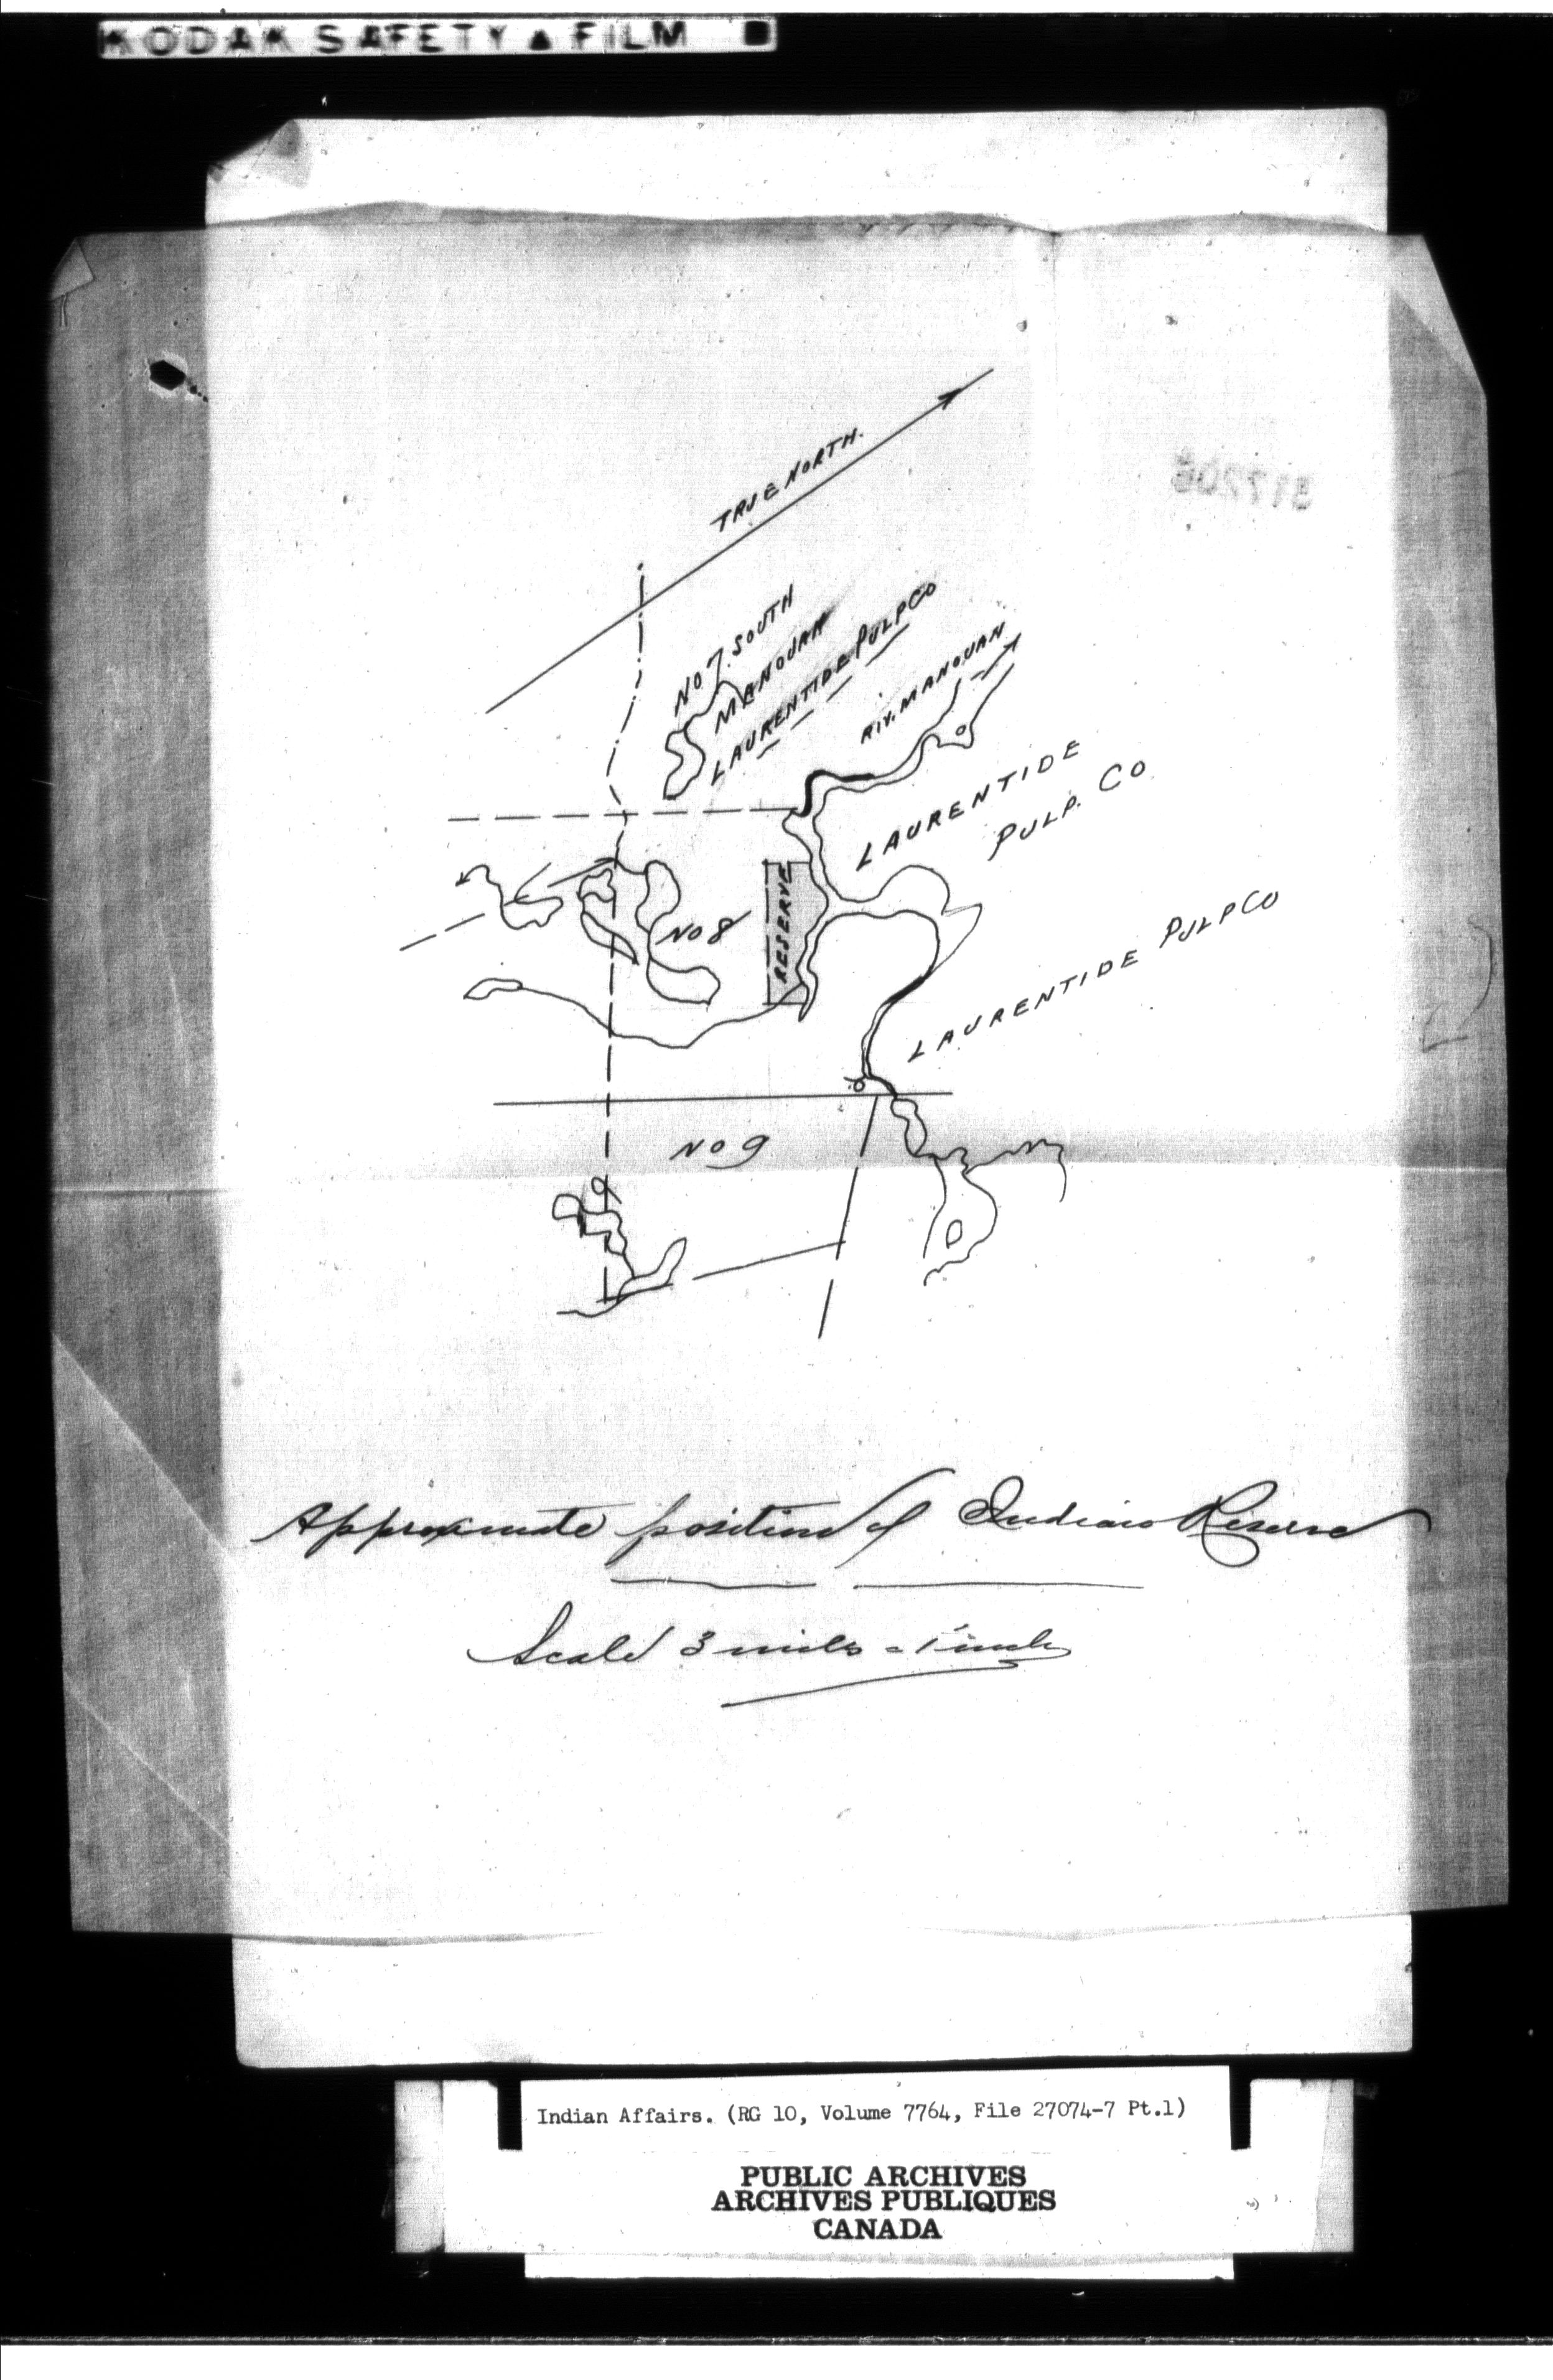 KODAK SAFETY ▲ FILM ■
TRUE NORTH.
317206
NO 7. SOUTH
MANOUAN
LAURENTIDE PULP CO
RIV. MANOUAN
LAURENTIDE
PULP. CO
NO 8
RESERVE
LAURENTIDE PULP CO
NO 9
Approximate position of Indian Reserve
Scale 3 miles = 1 inch
Indian Affairs. (RG 10, Volume 7764, File 27074-7 Pt.1)
PUBLIC ARCHIVES
ARCHIVES PUBLIQUES
CANADA